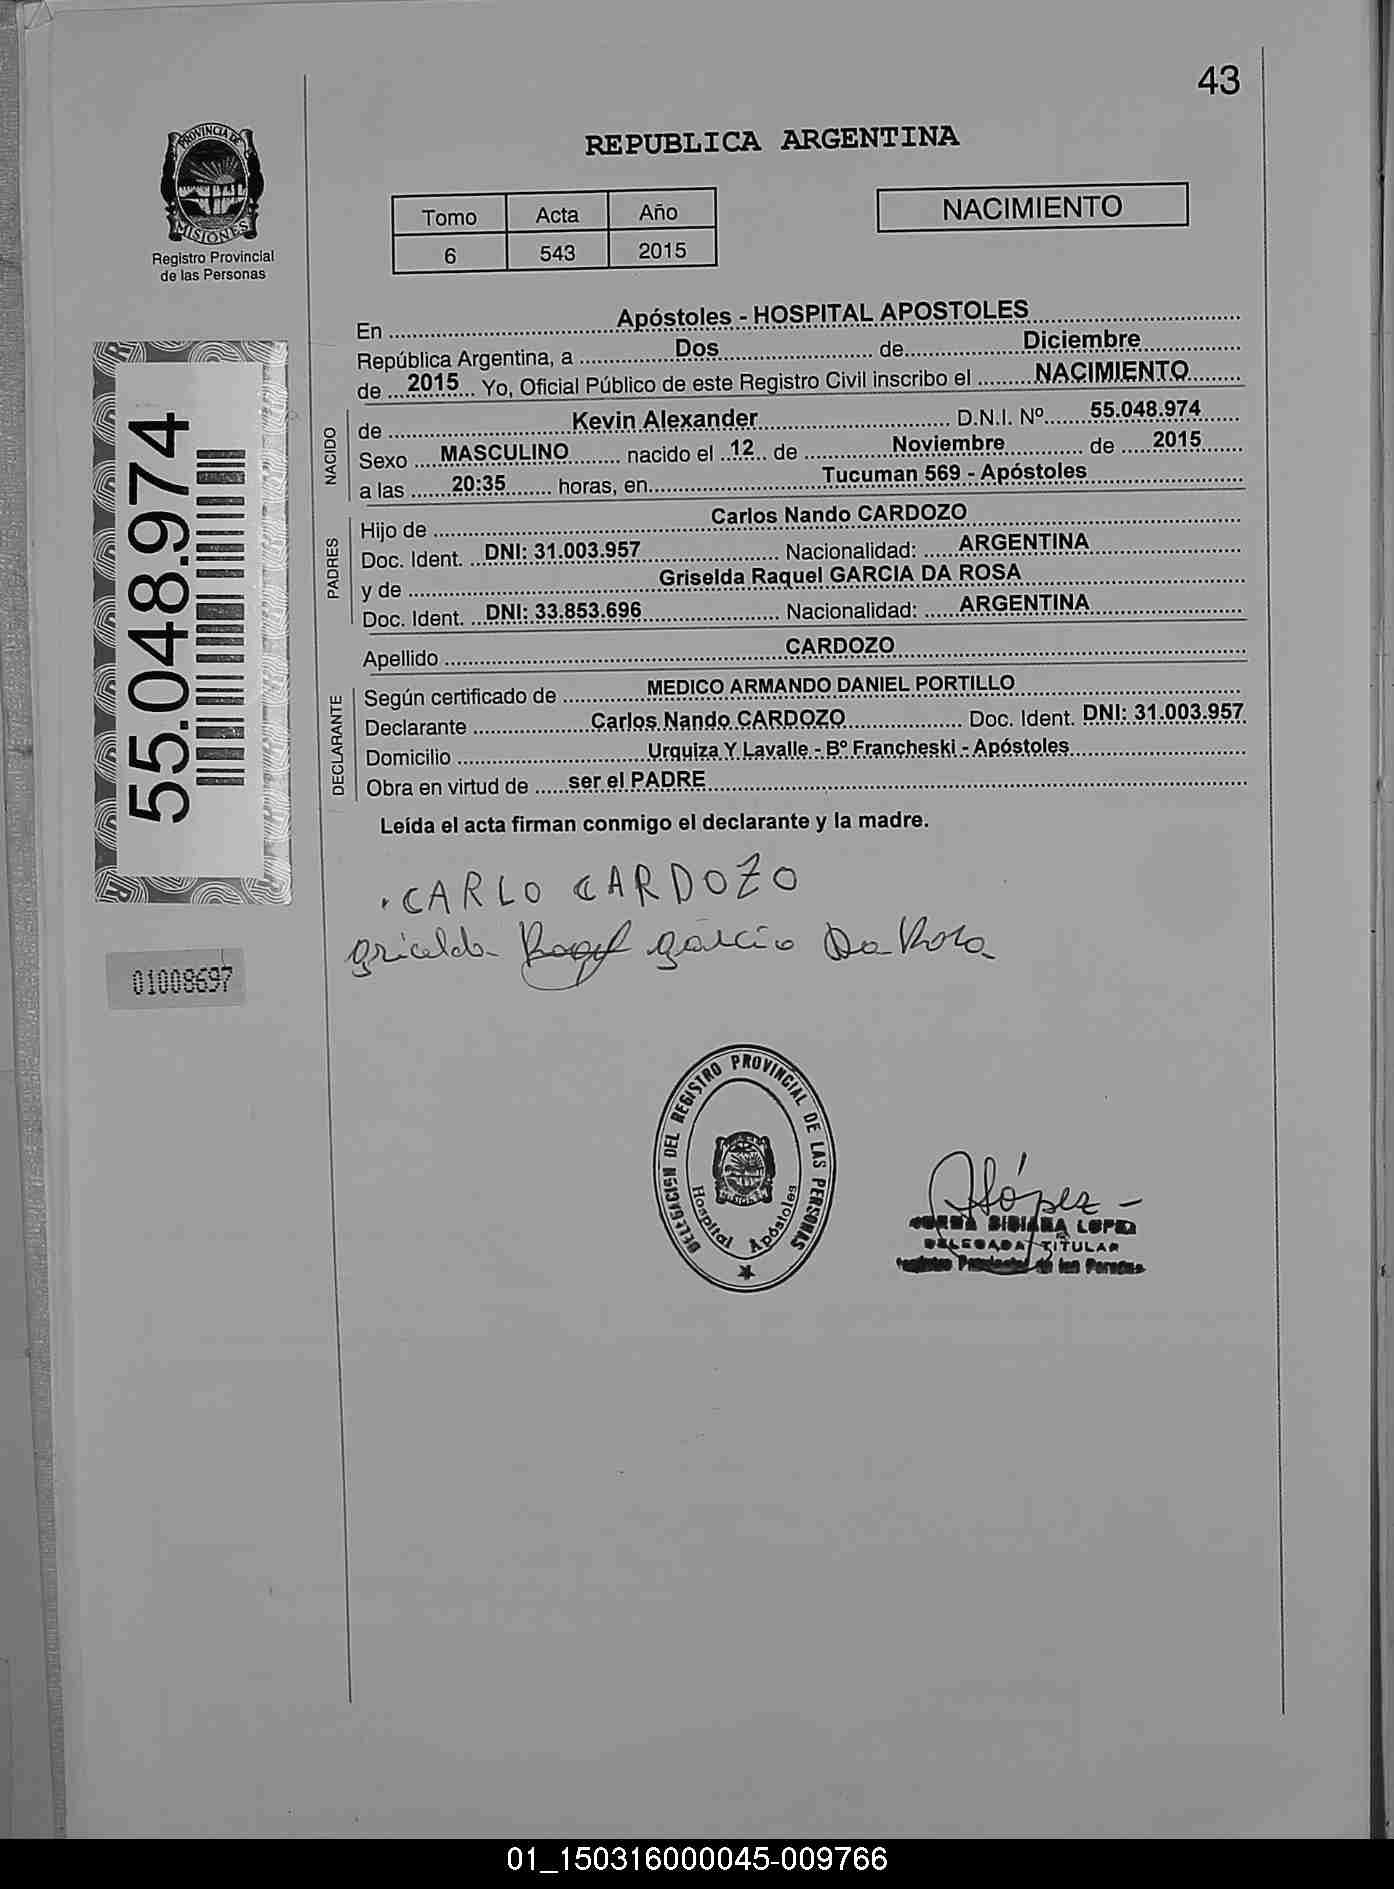 43
PROVINCIA DE
MISIONES
Registro Provincial
de las Personas
REPUBLICA ARGENTINA
Tomo Acta Año
6 543 2015
NACIMIENTO
En Apóstoles - HOSPITAL APOSTOLES
República Argentina, a Dos de Diciembre
de 2015 Yo, Oficial Público de este Registro Civil inscribo el NACIMIENTO
NACIDO
de Kevin Alexander D.N.I. Nº 55.048.974
Sexo MASCULINO nacido el 12 de Noviembre de 2015
a las 20:35 horas, en Tucuman 569 - Apóstoles
PADRES
Hijo de Carlos Nando CARDOZO
Doc. Ident. DNI: 31.003.957 Nacionalidad: ARGENTINA
y de Griselda Raquel GARCIA DA ROSA
Doc. Ident. DNI: 33.853.696 Nacionalidad: ARGENTINA
Apellido CARDOZO
DECLARANTE
Según certificado de MEDICO ARMANDO DANIEL PORTILLO
Declarante Carlos Nando CARDOZO Doc. Ident. DNI: 31.003.957
Domicilio Urquiza Y Lavalle - Bº Francheski - Apóstoles
Obra en virtud de ser el PADRE
Leída el acta firman conmigo el declarante y la madre.
55.048.974
01008697
CARLO CARDOZO
garcia Da Rosa
DELEGACION DEL REGISTRO PROVINCIAL DE LAS PERSONAS
MISIONES
Hospital Apóstoles
López
BIBIANA LOPEZ
DELEGADA TITULAR
Registro Provincial de las Personas
01_150316000045-009766